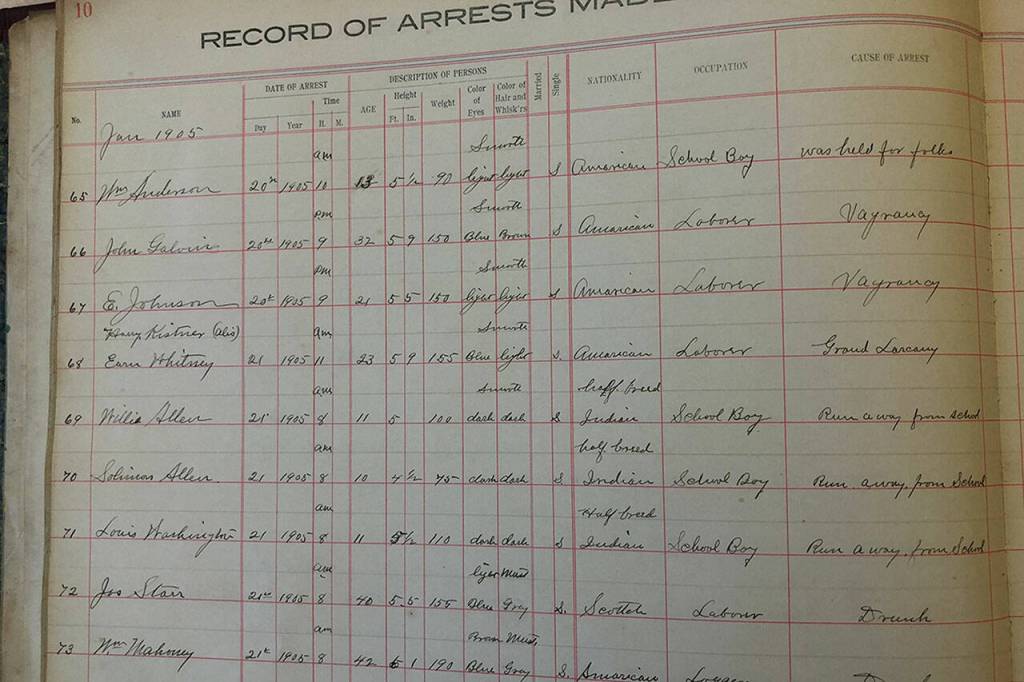 10
RECORD OF ARRESTS MADE
No. NAME DATE OF ARREST Day Year Time H. M. DESCRIPTION OF PERSONS AGE Height Ft. In. Weight Color of Eyes Color of Hair and Whisk'rs Married Single NATIONALITY OCCUPATION CAUSE OF ARREST
Jan 1905
am Smooth
65 Wm Anderson 20th 1905 10 13 5 1/2 90 light light S American School Boy was held for folks
pm Smooth
66 John Galvin 20th 1905 9 32 5 9 150 Blue Brown S Amarican Laborer Vagrancy
pm Smooth
67 E. Johnson 20th 1905 9 21 5 5 150 light light S Amarican Laborer Vagrancy
Harry Kistner (Alis) am Smooth
68 Whitney 21 1905 11 23 5 9 155 Blue light S. Amarican Laborer Grand Larcany
am Smooth half breed
69 Willie Allen 21 1905 8 11 5 100 dark dark S Indian School Boy Run away from school
am half breed
70 Allen 21 1905 8 10 4 1/2 75 dark dark S Indian School Boy Run away from School
am Half breed
71 Louis Washington 21 1905 8 11 5 1/2 110 dark dark S Indian School Boy Run away from School
am Must
72 Jos Starr 21st 1905 8 40 5.5 155 Blue Gray S. Scottch Laborer Drunk
am Must,
73 Wm Mahoney 21st 1905 8 42 1 190 Blue Gray S. Amarican